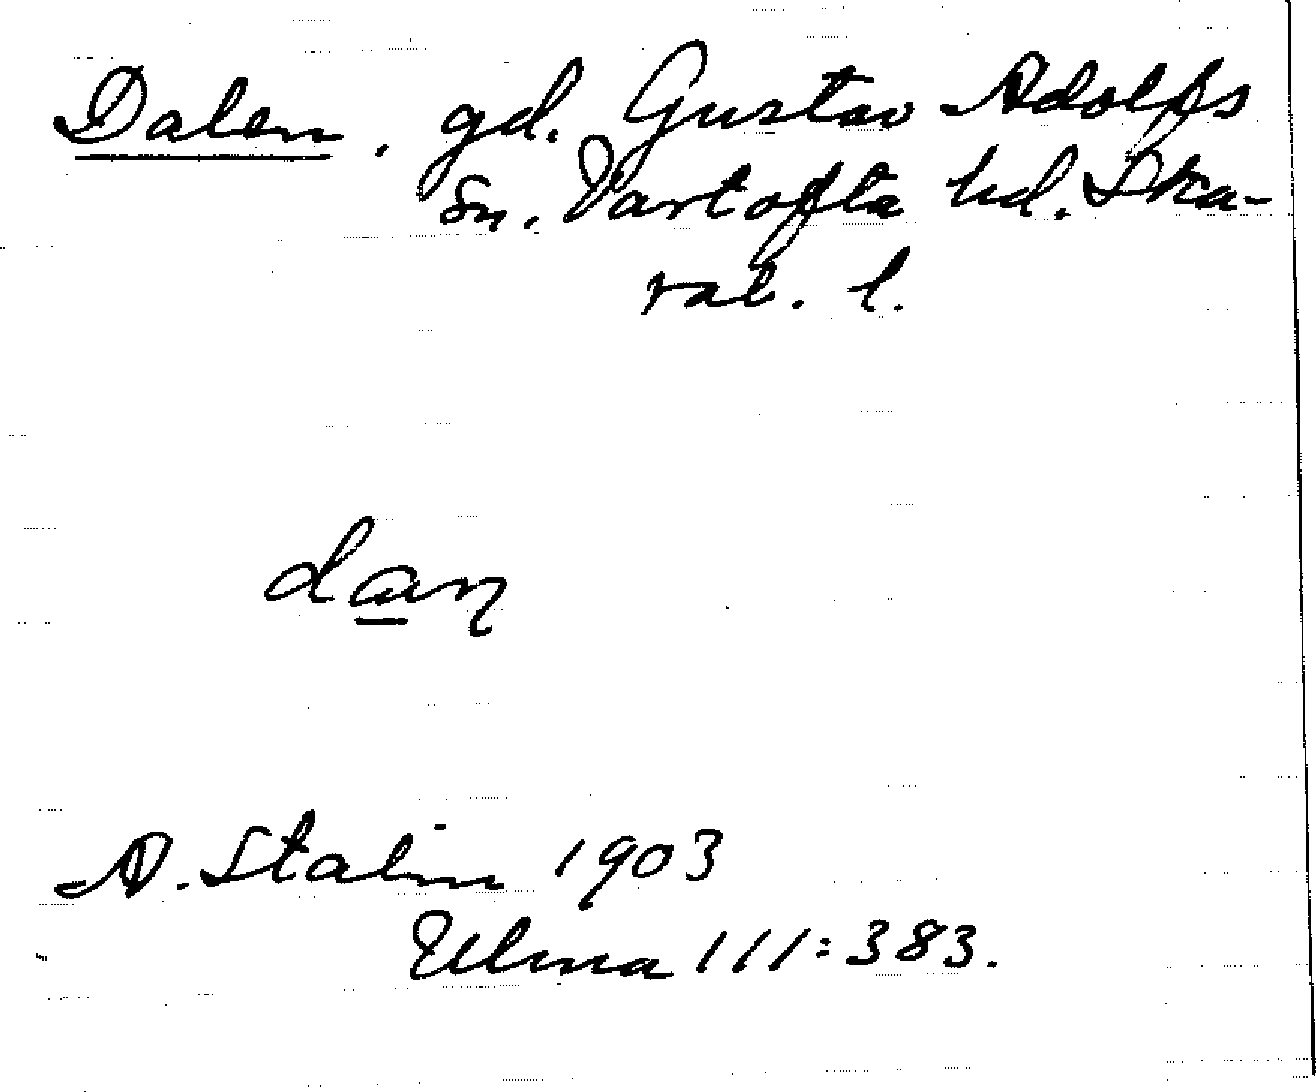 Dalen. gd. Gustav Adolfs
sn. Vartofta hd. Ska-
rab. l.
daɳ
A. Stalin 1903
Ulma 111:383.